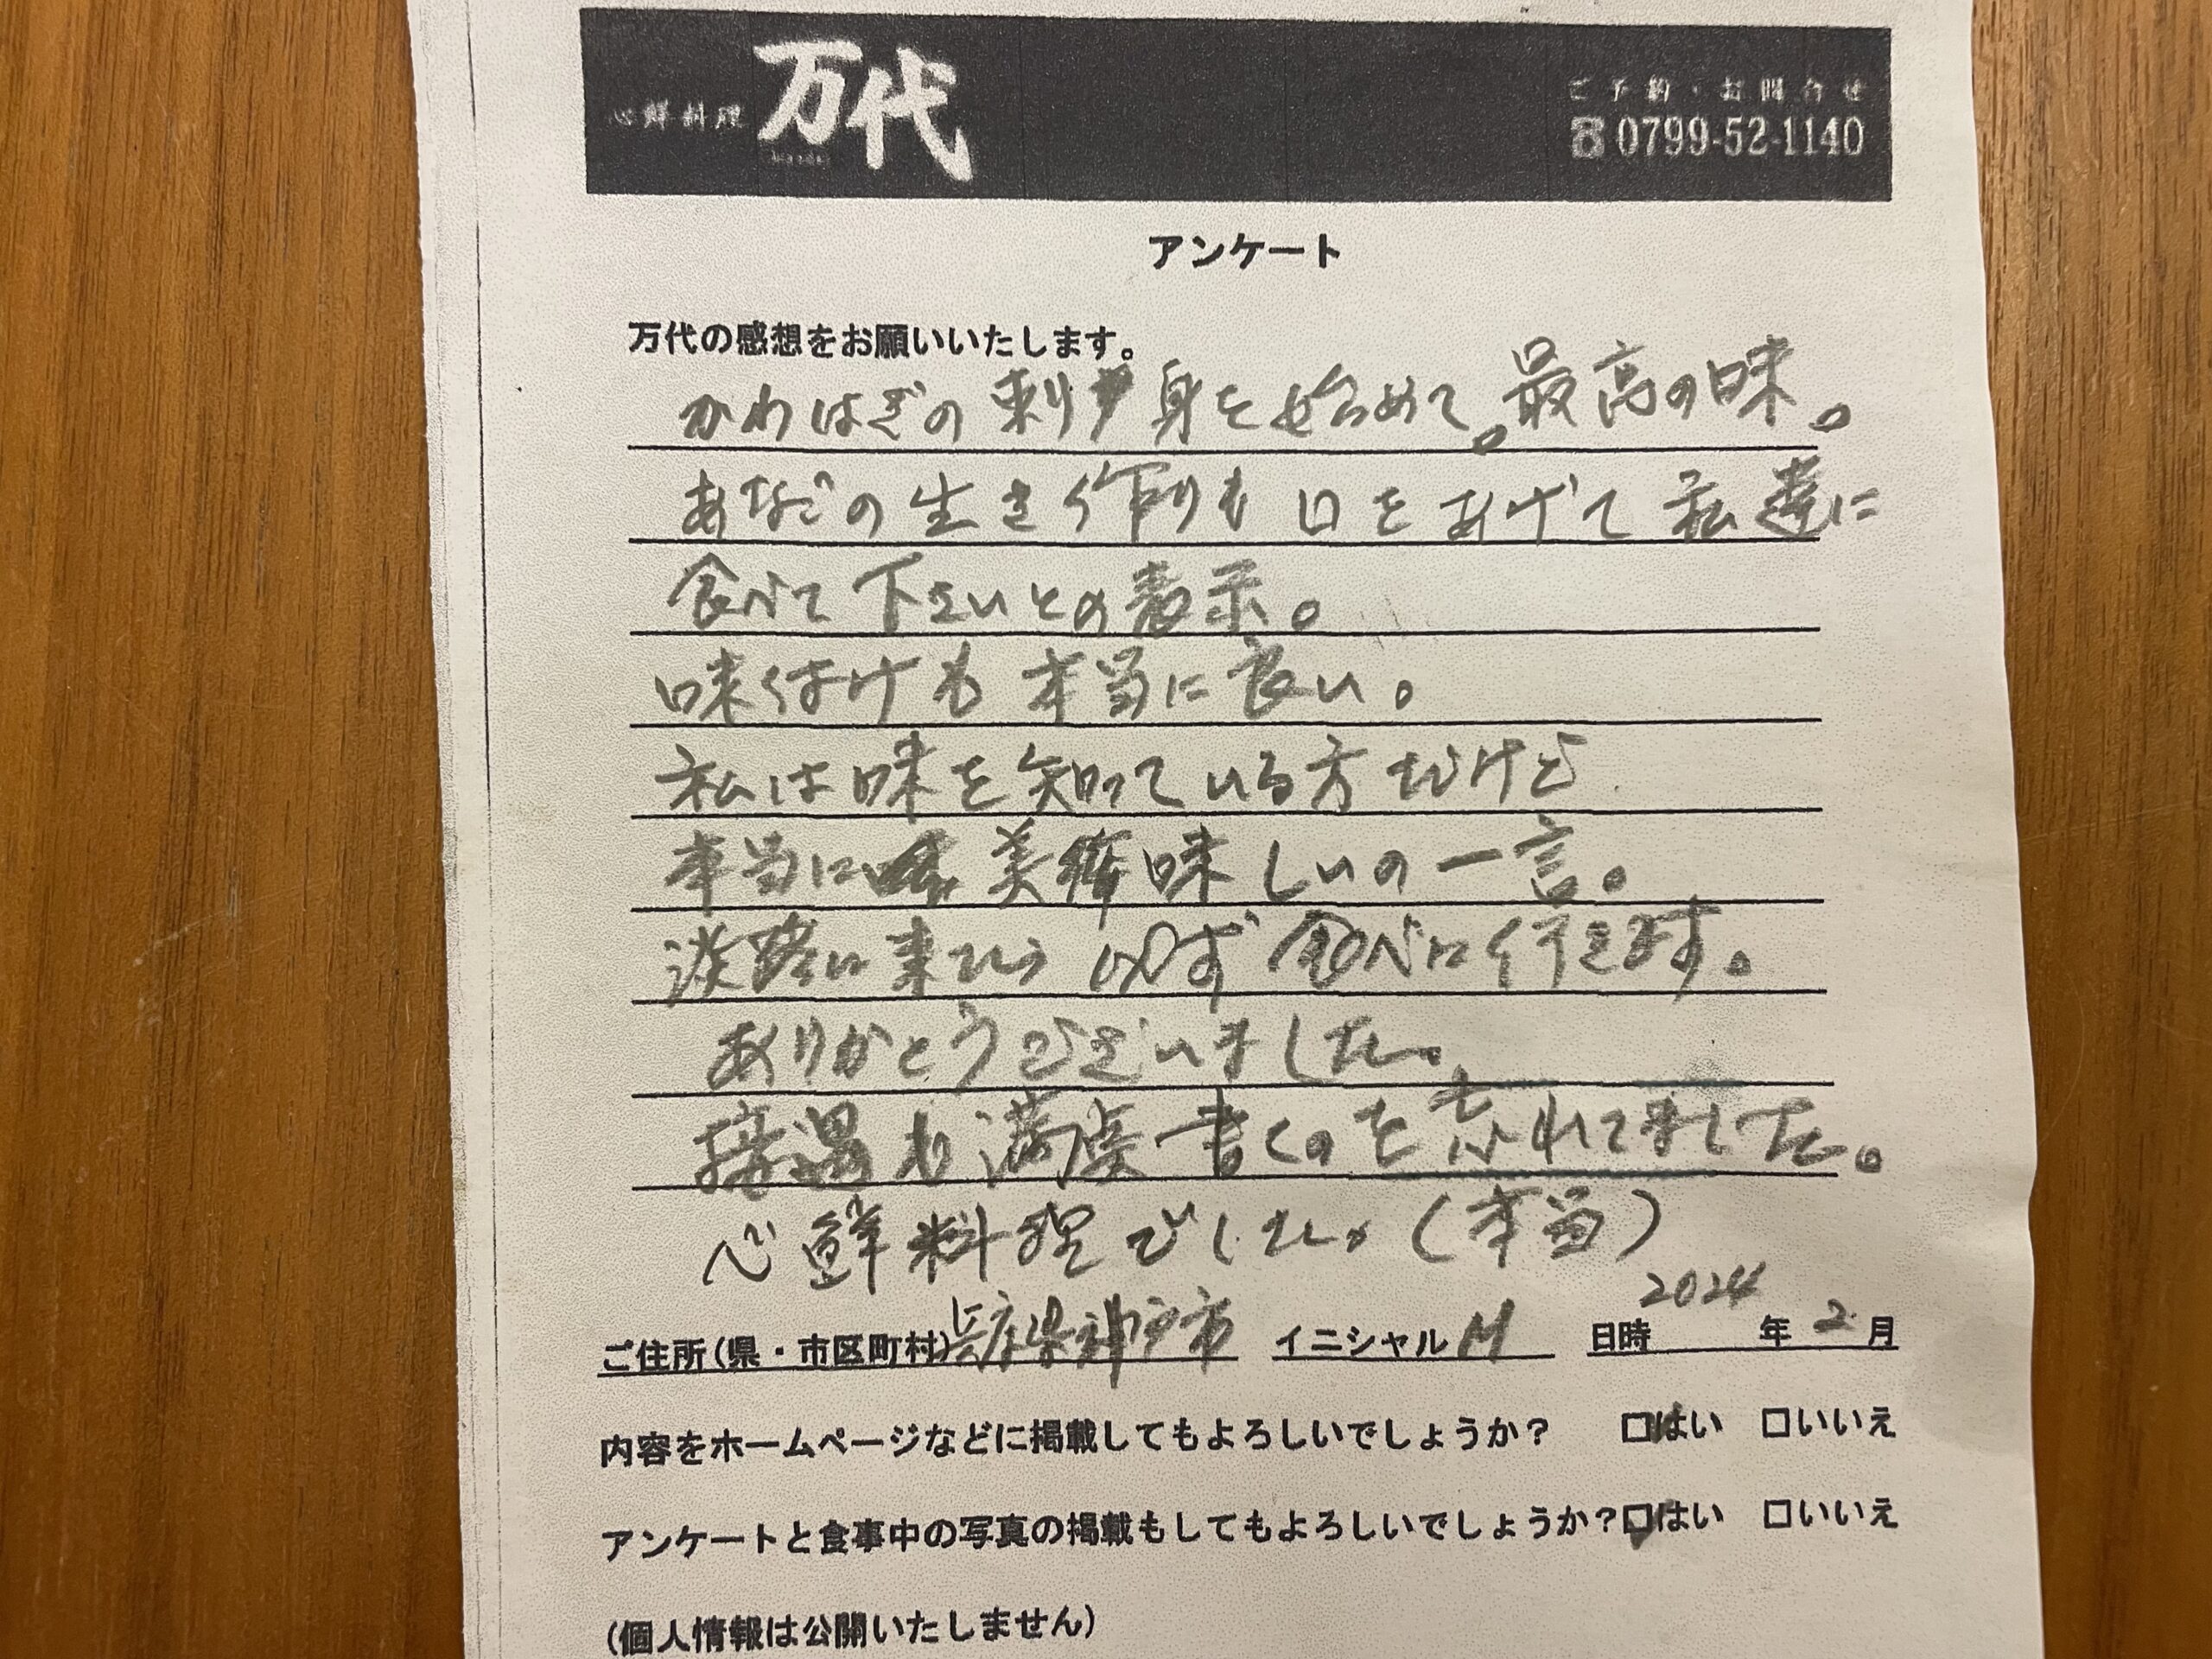 心鮮料理 万代
ご予約・お問合せ
☎0799-52-1140
アンケート
万代の感想をお願いいたします。
かわはぎの刺身を始めて。最高の味。
あなごの生き作りも口をあげて私達に
食べて下さいとの表示。
味付けも本当に良い。
私は味を知っている方だけど
本当に美味しいの一言。
淡路に来たら必ず食べに行きます。
ありがとうございました。
接遇も満点書くのを忘れてました。
心鮮料理でした。(本当)
ご住所(県・市区町村)兵庫県神戸市 イニシャル M 日時 2024年 2月
内容をホームページなどに掲載してもよろしいでしょうか? □はい □いいえ
アンケートと食事中の写真の掲載もしてもよろしいでしょうか?□はい □いいえ
(個人情報は公開いたしません)